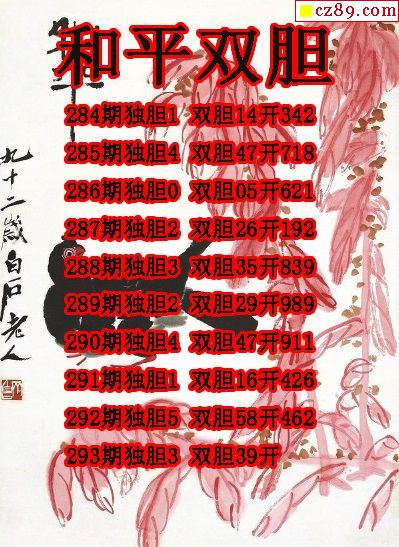 cz89.com
和平双胆
284期独胆1 双胆14开342
285期独胆4 双胆47开718
286期独胆0 双胆05开621
287期独胆2 双胆26开192
288期独胆3 双胆35开839
289期独胆2 双胆29开989
290期独胆4 双胆47开911
291期独胆1 双胆16开426
292期独胆5 双胆58开462
293期独胆3 双胆39开
九十二岁白石老人